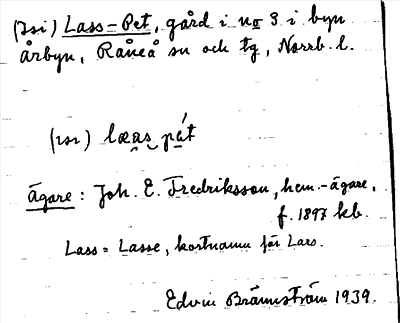 (2si) Lass-Pet, gård i no 3 i byn
Årbyn, Råneå sn och tg, Norrb. l.
læas pát
Ägare : Joh. E. Fredriksson, hem.-ägare,
f. 1897 kb.
Lass = Lasse, kortnamn för Lars.
Edvin Brännström 1939.